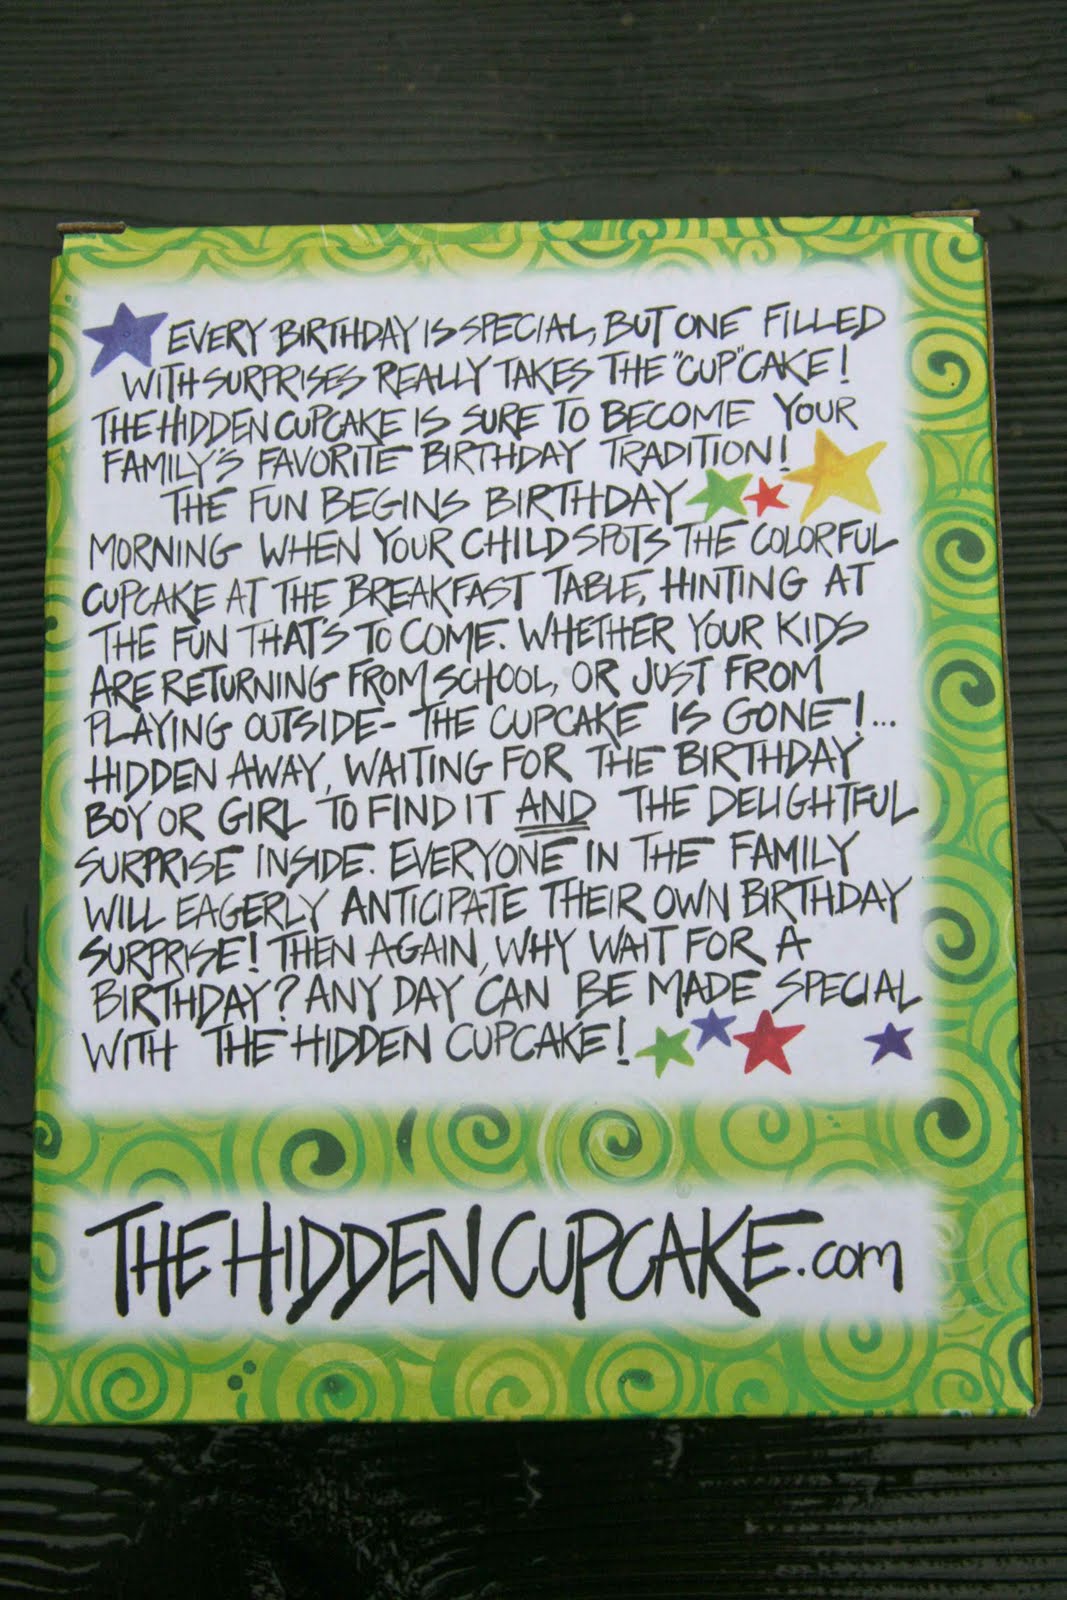 EVERY BIRTHDAY IS SPECIAL, BUT ONE FILLED
WITH SURPRISES REALLY TAKES THE "CUP"CAKE!
THE HIDDEN CUPCAKE IS SURE TO BECOME YOUR
FAMILY'S FAVORITE BIRTHDAY TRADITION!
THE FUN BEGINS BIRTHDAY
MORNING WHEN YOUR CHILD SPOTS THE COLORFUL
CUPCAKE AT THE BREAKFAST TABLE, HINTING AT
THE FUN THAT'S TO COME. WHETHER YOUR KIDS
ARE RETURNING FROM SCHOOL, OR JUST FROM
PLAYING OUTSIDE- THE CUPCAKE IS GONE!...
HIDDEN AWAY, WAITING FOR THE BIRTHDAY
BOY OR GIRL TO FIND IT AND THE DELIGHTFUL
SURPRISE INSIDE. EVERYONE IN THE FAMILY
WILL EAGERLY ANTICIPATE THEIR OWN BIRTHDAY
SURPRISE! THEN AGAIN, WHY WAIT FOR A
BIRTHDAY? ANY DAY CAN BE MADE SPECIAL
WITH THE HIDDEN CUPCAKE!
THEHIDDENCUPCAKE.com